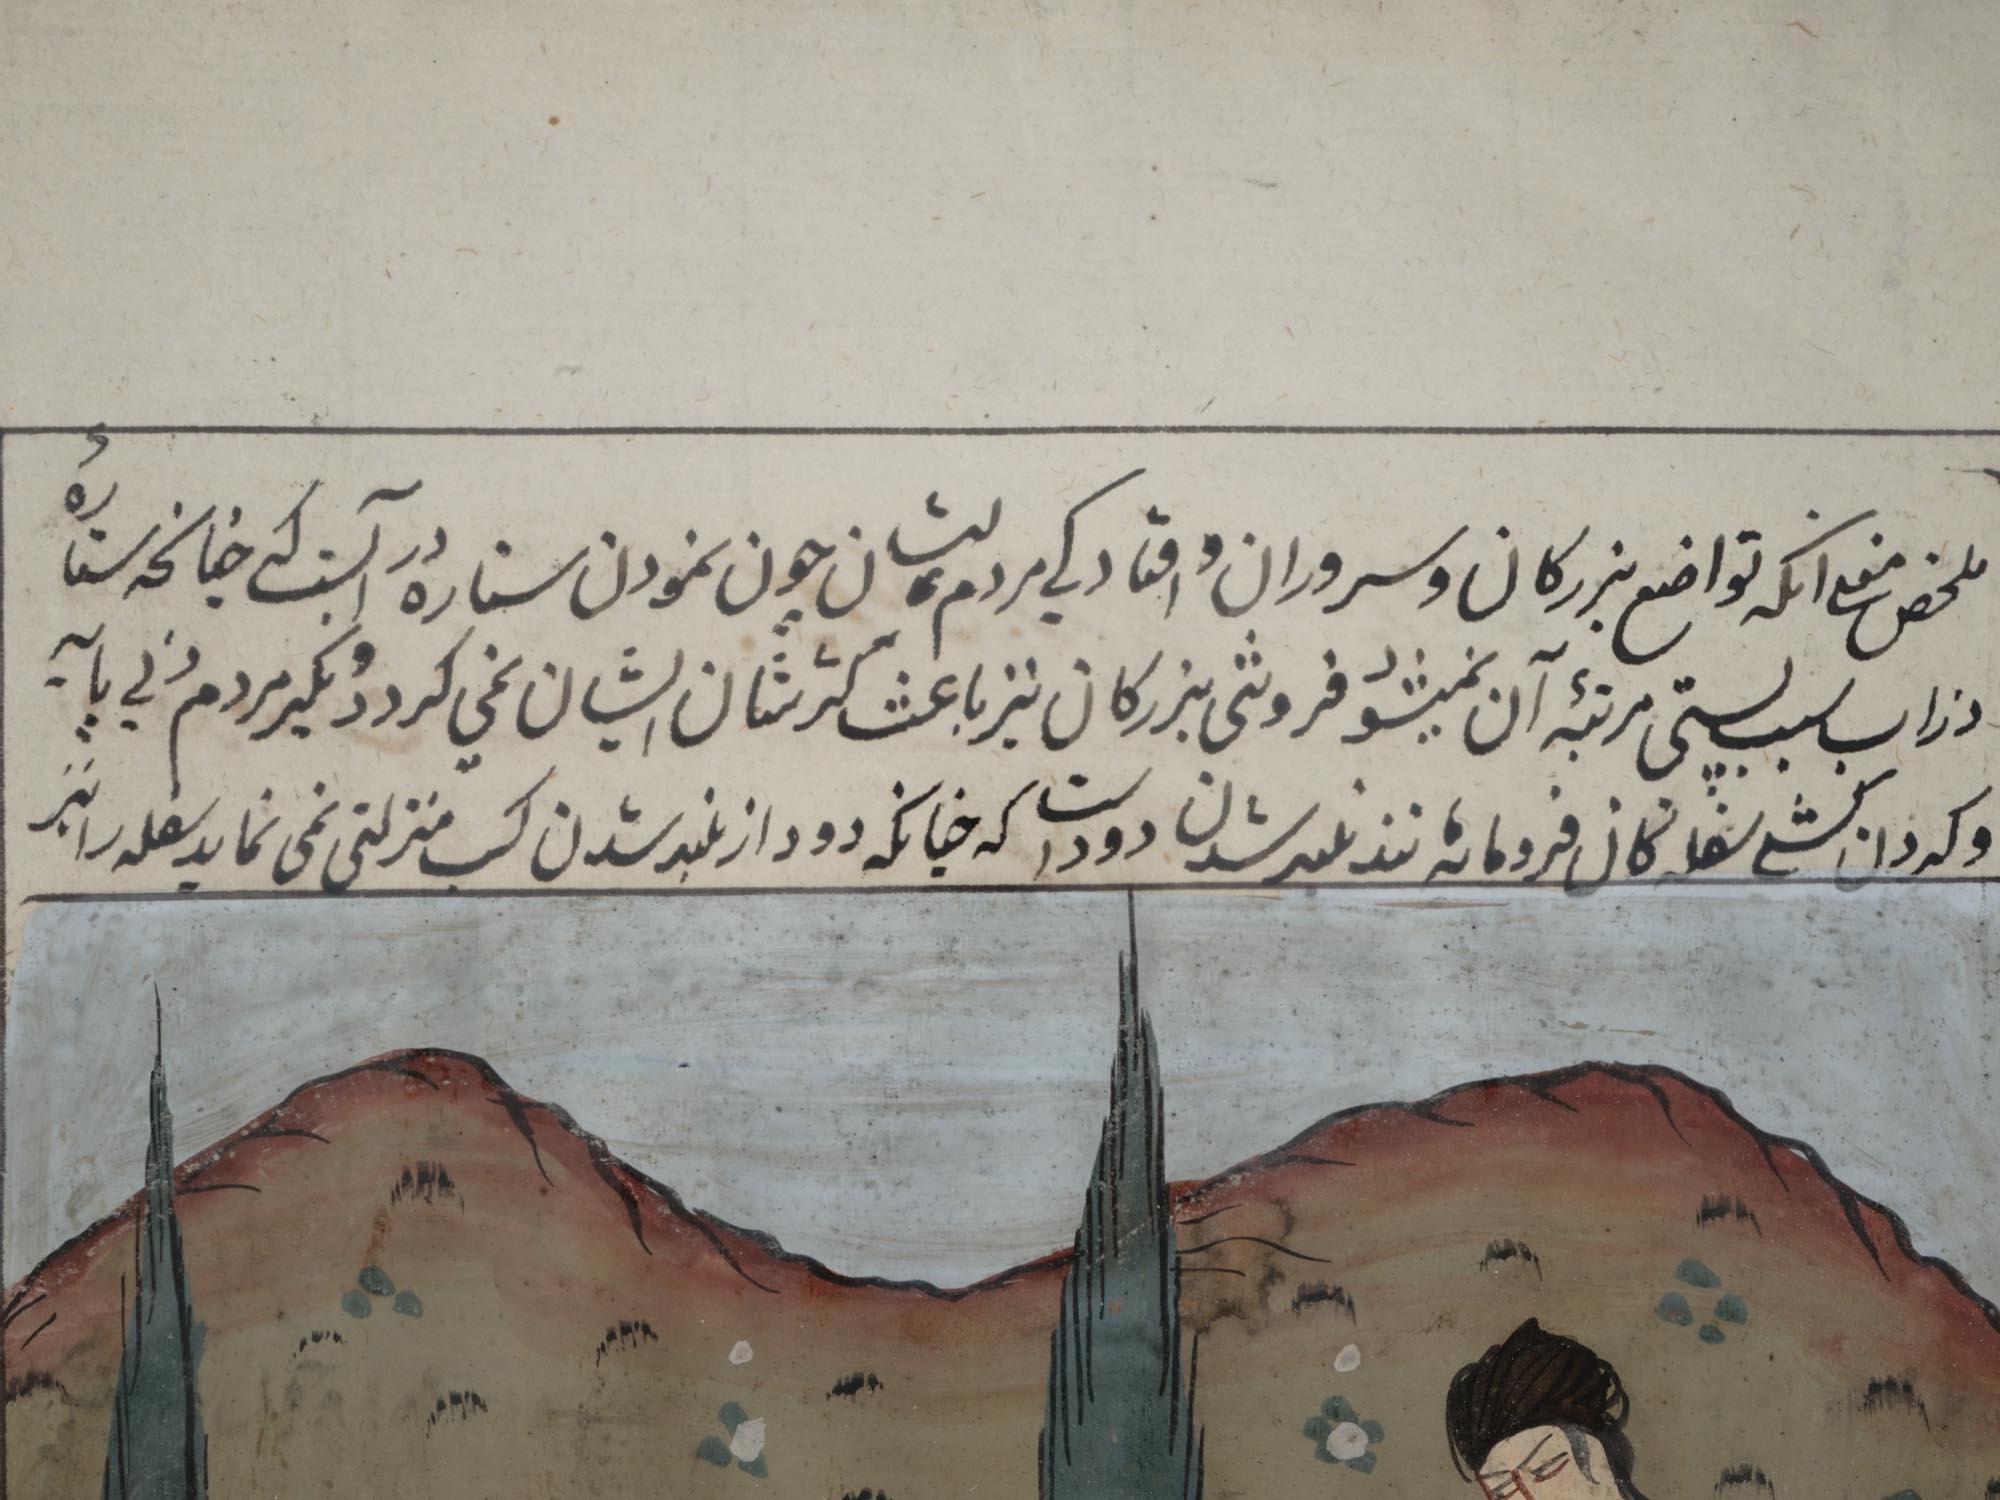 ملخص معنی انکه تواضع بزرکان و سروران و افتادکی مردم پیشان چون نمودن ستاره در آبست که چنانچه ستارهٔ
در اب سبب پستی مرتبهٔ آن نمیشود فروشی بزرکان نیز باعث کثر شان ایشان نمی کردد و دیکیر مردم دنی پایه
و کردان کشی سفله کان فرومایهٔ تند بلند شدن دود است که چنانکه دود از بلند شدن کسب منزلتی نمی نماید سفله را نیز